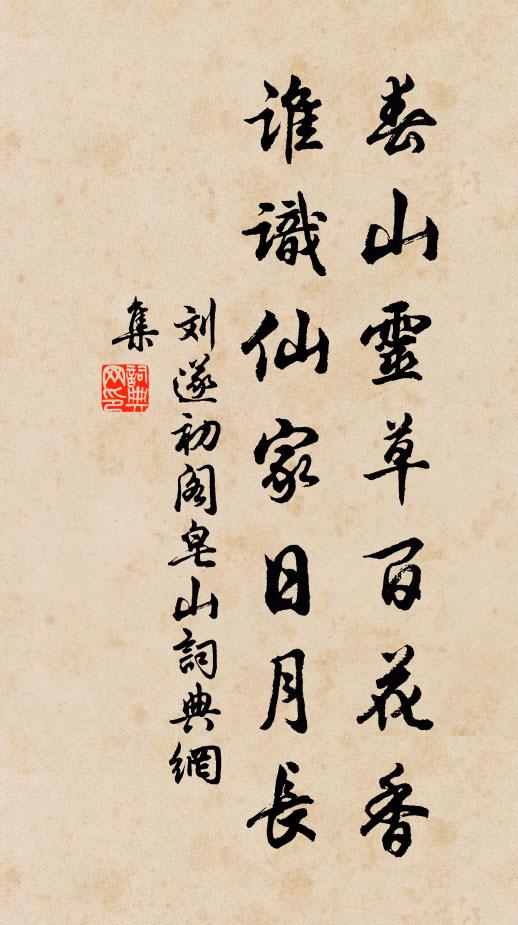 春山靈草百花香
誰識仙家日月長
刘遂初阁皂山詞典網
集
詞典
网印